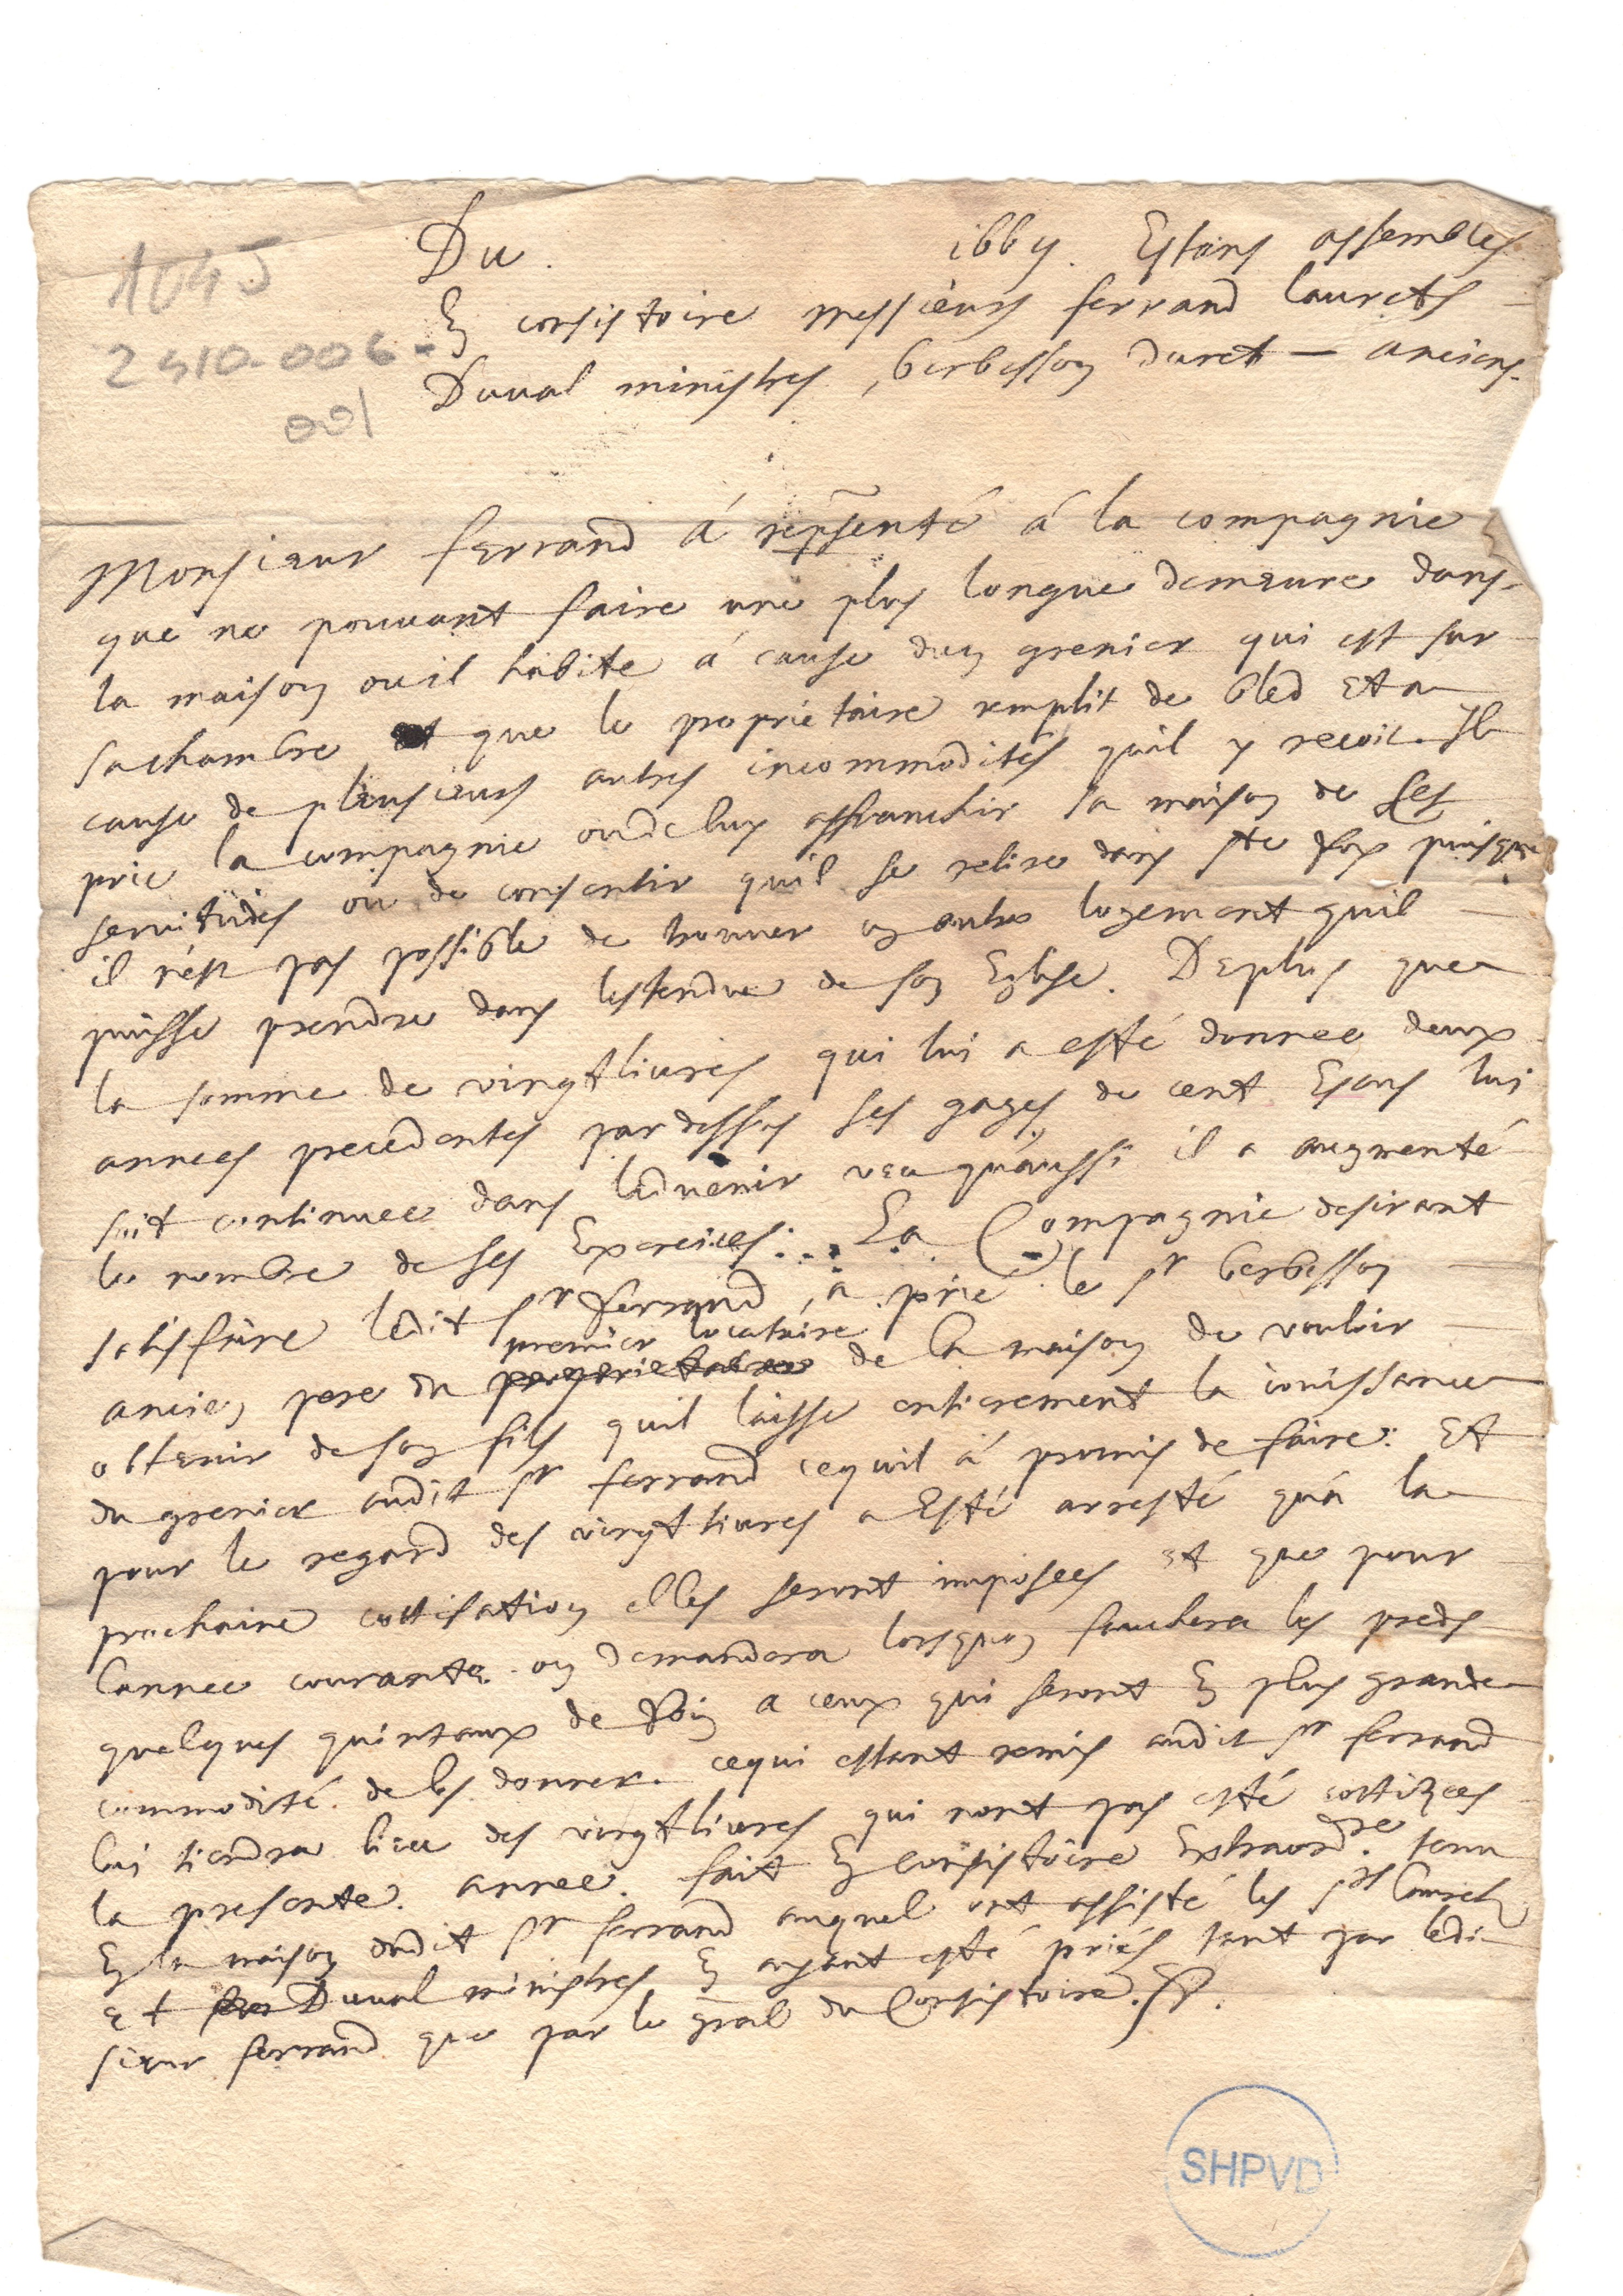 1045
2410-006-
001
Du. 166y. Estans assembles
En consistoire messieurs ferrand laurets
Duual ministres, berbesson duret — anciens.
Monsieur ferrand á rep̃senté á la compagnie
que ne pouuant faire une plus longue demeure dans
la maison ou il habite á cause dun grenier qui est sur
sa chambre que le proprietaire remplit de bled Et a
cause de plusieurs autres incommodités quil y recoit. Il
prie la compagnie ou de luy affranchir sa maison de ses
seruitudes ou de consentir quil se retire dans ste foy puisque
il n'est pas possible de trouuer un autre logement quil
puisse prendre dans lestendue de son Eglise. De plus que
la somme de vingt liures qui lui a esté donnee deux
annees precedentes par dessus ses gages de cent Escus lui
soit continuee dans laduenir veu quaussi il a augmenté
le nombre de ses Exercices... La Compagnie desirant
satisfaire ledit sr ferrand, a prié le sr berbesson
premier locataire
ancien pere du proprietaire de la maison de vouloir
obtenir de son fils quil laisse entierement la iouissance
du grenier audit sr ferrand ce quil á promis de faire: Et
pour le regard des vingt liures a Esté arresté quá la
prochaine cottisation elles seront imposees et que pour
lannee courante on demandera lorsquon fauchera les preds
quelques quintaux de foin a ceux qui seront En plus grande
commodité de les donner. ce qui estant remis audit sr ferrand
lui tiendra lieu des vingt liures qui nont pas esté cottizees
la presente annee. fait En consistoire Extraordre. tenu
En la maison dudit sr ferrand auquel ont assisté les srs laurets
et Duual ministres En ayant esté priés tant par ledi
sieur ferrand que par le gñal du Consistoire.
SHPVD